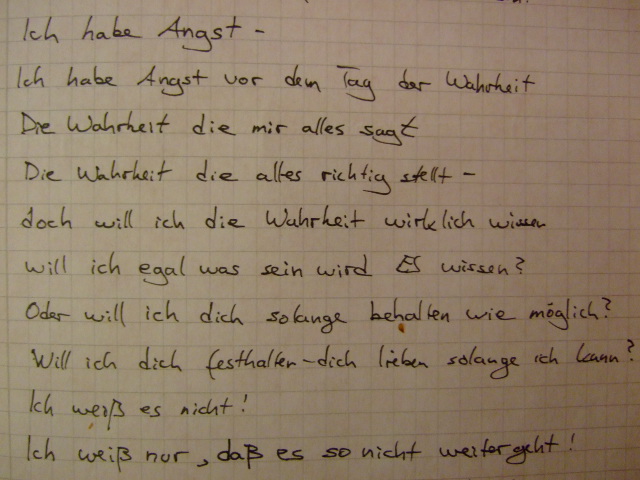 Ich habe Angst -
Ich habe Angst vor dem Tag der Wahrheit
Die Wahrheit die mir alles sagt
Die Wahrheit die alles richtig stellt -
doch will ich die Wahrheit wirklich wissen
will ich egal was sein wird ES wissen?
Oder will ich dich solange behalten wie möglich?
Will ich dich festhalten - dich lieben solange ich kann?
Ich weiß es nicht!
Ich weiß nur, daß es so nicht weitergeht!